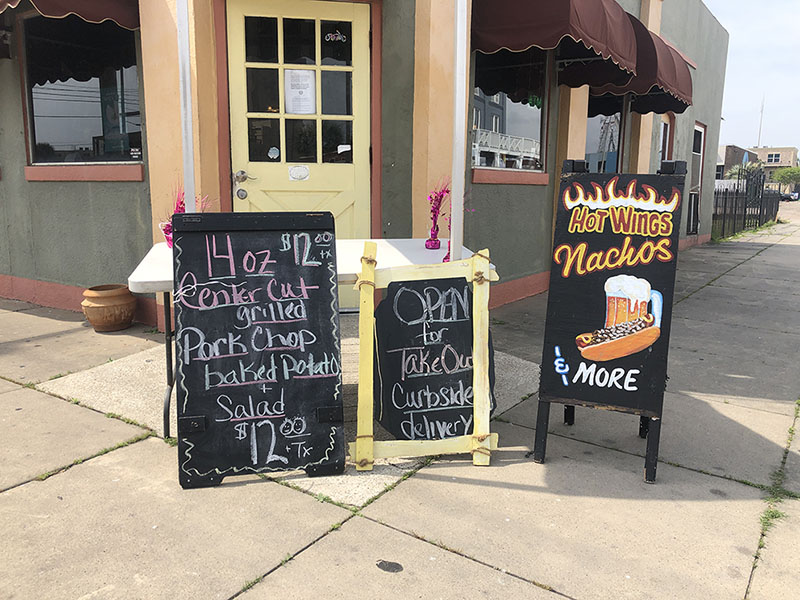 14 oz $12.00 +tx
Center Cut
grilled
Pork Chop
baked Potato
+
Salad
$12.00 + Tx
OPEN
for
TakeOut
Curbside
delivery
HOT WINGS
Nachos
&
MORE